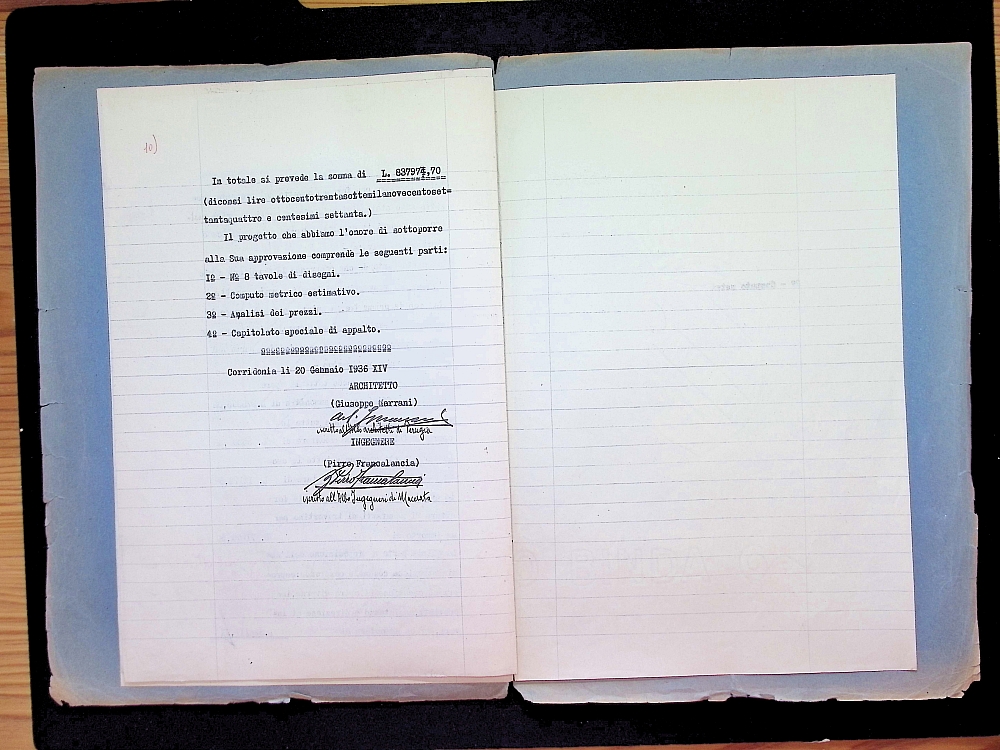 10)
In totale si prevede la somma di L. 837974,70
(diconsi lire ottocentotrentasettemilanovecentoset=
tantaquattro e centesimi settanta.)
Il progetto che abbiamo l'onore di sottoporre
alla Sua approvazione comprende le seguenti parti:
1º - Nº 8 tavole di disegni.
2º - Computo metrico estimativo.
3º - Analisi dei prezzi.
4º - Capitolato speciale di appalto.
Corridonia li 20 Gennaio 1936 XIV
ARCHITETTO
(Giuseppe Marrani)
iscritto all'Albo architetti di Perugia
INGEGNERE
(Pirro Francalancia)
Pirro Francalancia
iscritto all'Albo Ingegneri di Macerata